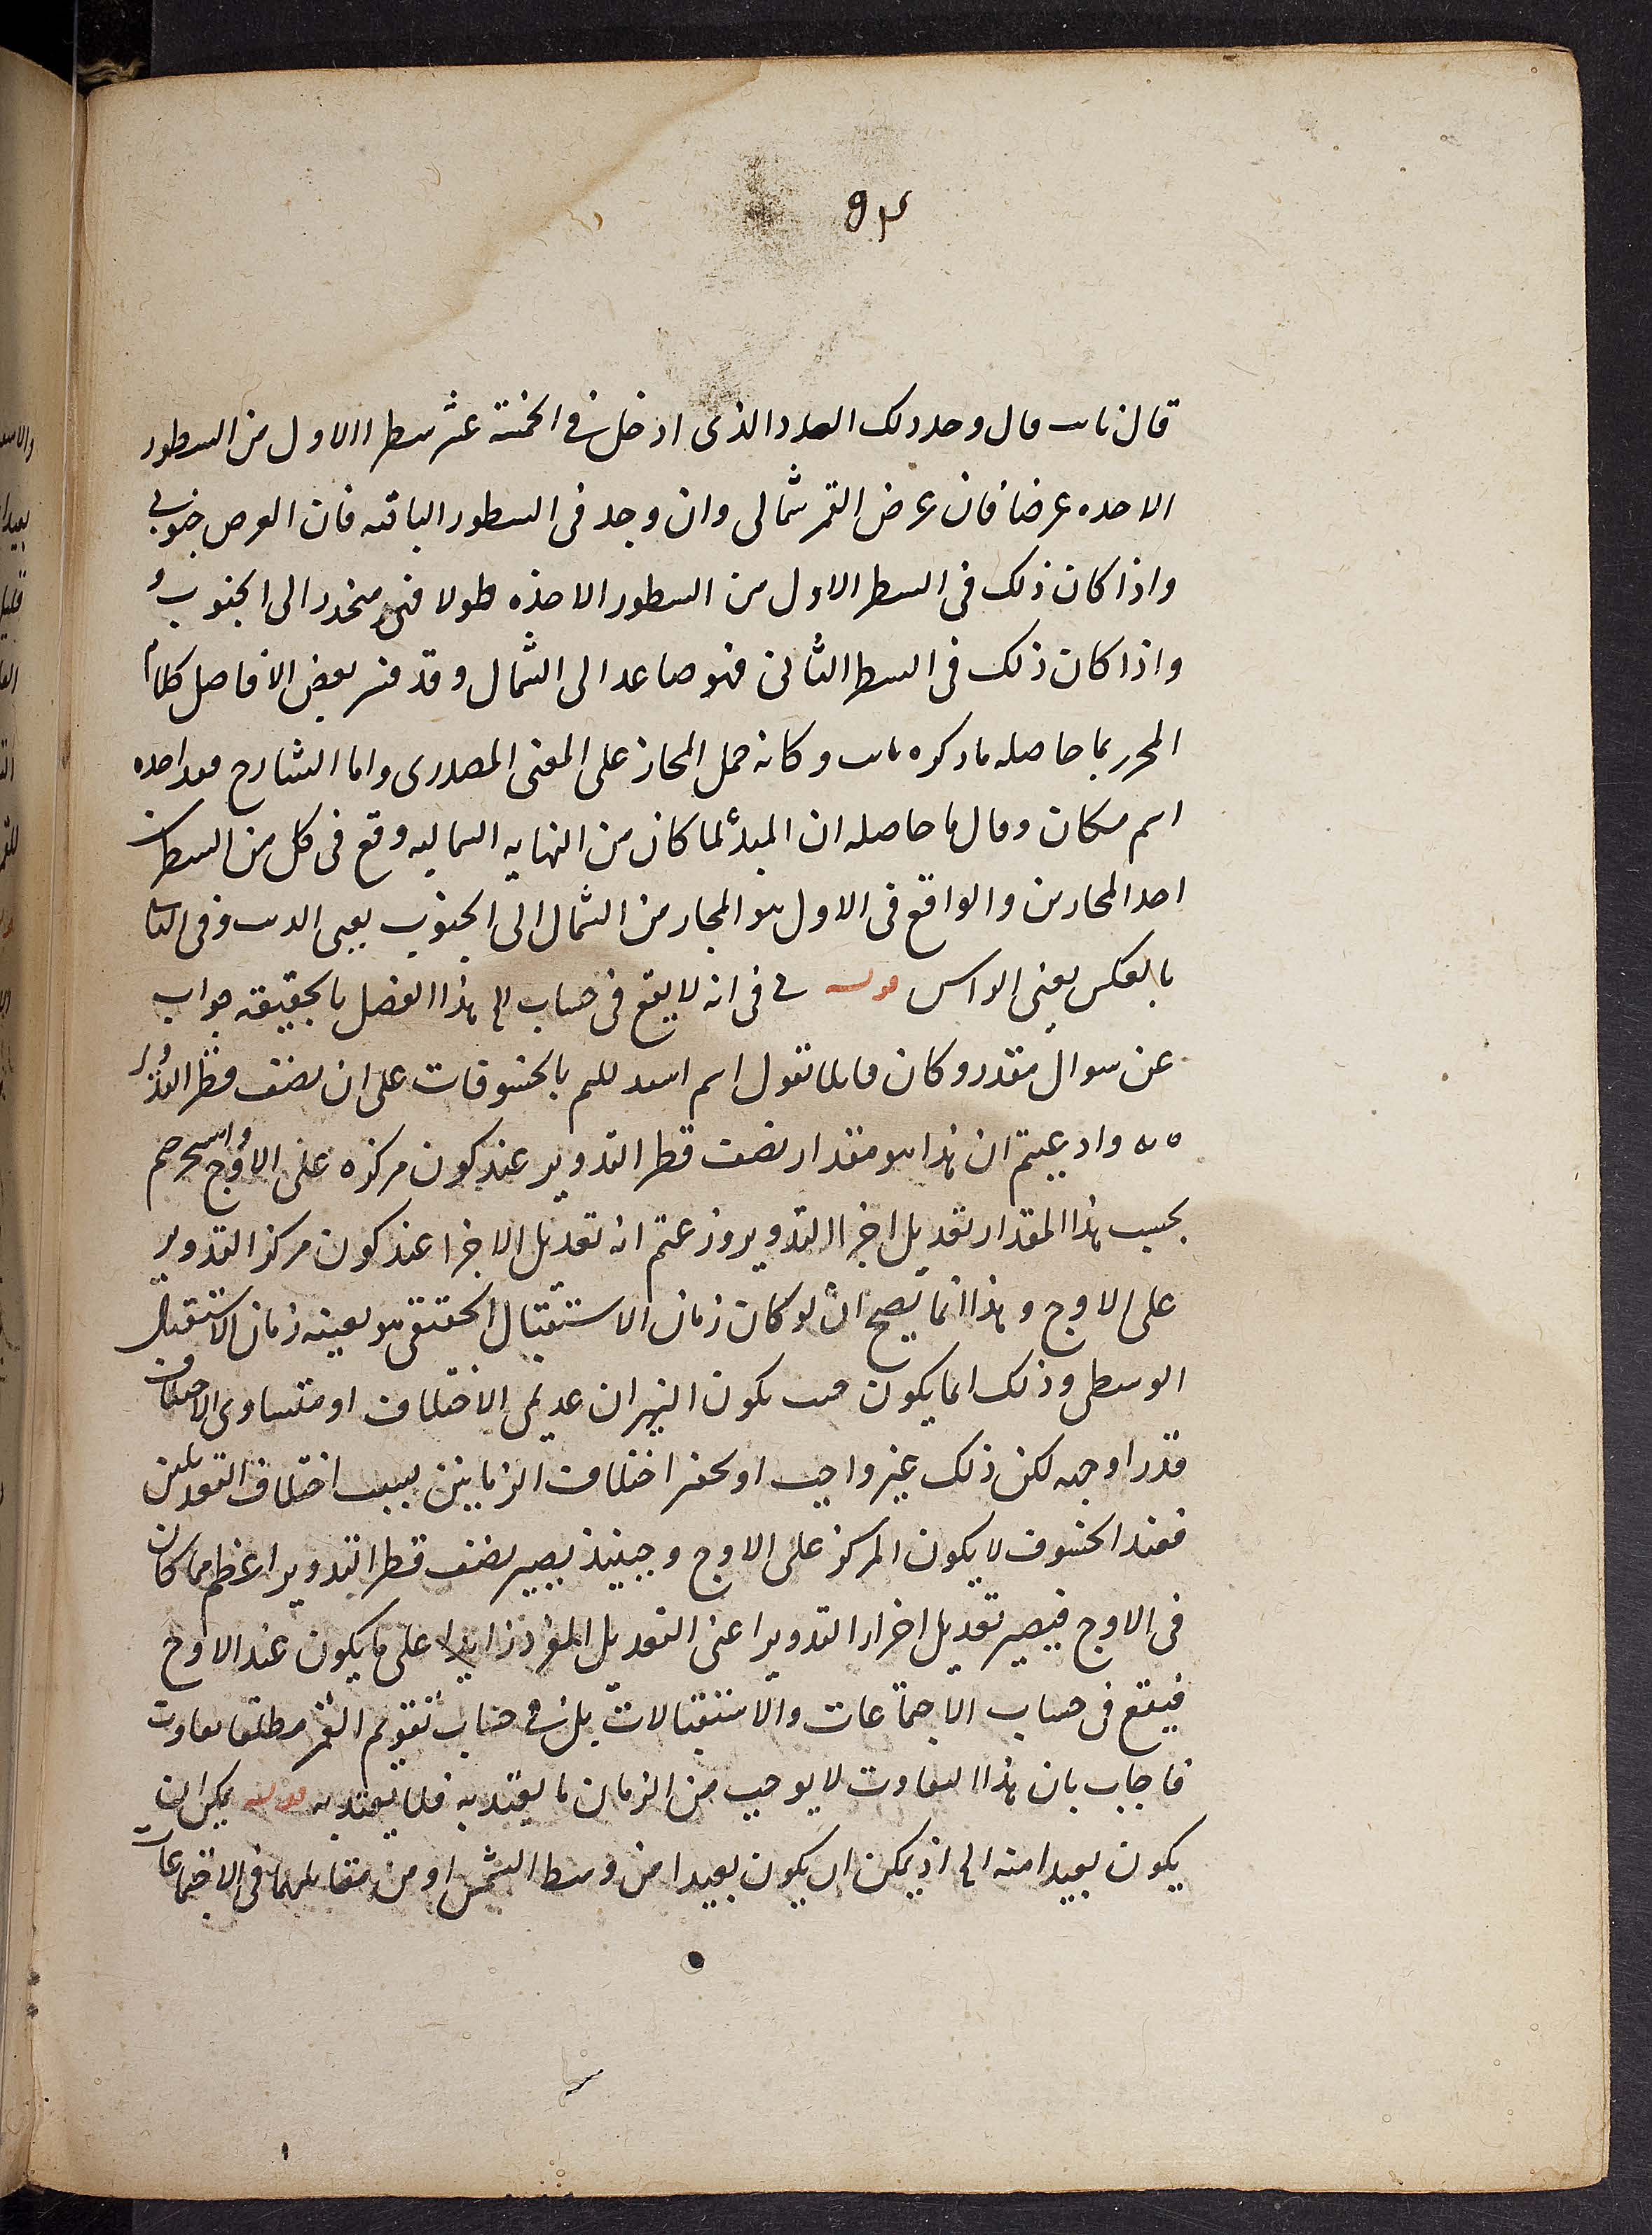 قال ثابت قال وحد ذلك العدد الذى ادخل فى الخمسة عشر سطرا الاول من السطور
الاخذه عرضا فان عرض القمر شمالى وان وجد فى السطور الباقيه فان العرض جنوبى
واذا كان ذلك فى السطر الاول من السطور الاخذه طولا فهو منحدر الى الجنوب و
واذا كان ذلك فى السطر الثانى فهو صاعد الى الشمال وقد فسر بعض الافاضل كلام
المحرر بما حاصله ما ذكره ثابت وكانه حمل المجاز على المعنى المصدرى واما الشارح فقد اخذه
اسم مكان وقال ما حاصله ان المبدأ لما كان من النهايه الشماليه وقع فى كل من السطرين
احد المجازين والواقع فى الاول هو المجاز من الشمال الى الجنوب يعنى الذنب وفى الثانى
بالعكس يعنى الراس قوله فى انه لا يقع فى حساب الخ هذا الفصل بالحقيقه جواب
عن سوال مقدر وكان قائلا يقول انتم استدللتم بالخسوفات على ان نصف قطر التدوير
ه يه وادعيتم ان هذا هو مقدار نصف قطر التدوير عند كون مركزه على الاوج واستخرجتم
بحسب هذا المقدار تعديل اجزا التدوير وزعمتم انه تعديل الاجزا عند كون مركز التدوير
على الاوج وهذا انما يصح ان لو كان زمان الاستقبال الحقيقى هو بعينه زمان الاستقبال
الوسطى وذلك انما يكون حيث يكون النيران عديمى الاختلاف او متساوى الاختلاف
قدرا وجهه لكن ذلك غير واجب اختلاف الزمانين بسبب اختلاف التعديلين
فعند الخسوف لا يكون المركز على الاوج وحينئذ يصير نصف قطر التدوير اعظم مما كان
فى الاوج فيصير تعديل اجزاء التدوير اعنى التعديل المفرد زايدا على ما يكون عند الاوج
فيقع فى حساب الاجتماعات والاستقبالات بل فى حساب تقويم القمر مطلقا تفاوت
فاجاب بان هذا التفاوت لا يوجب من الزمان ما يعتد به فلا يعتد به قوله يمكن ان
يكون بعيدا منه الخ اذ يمكن ان يكون بعيدا من وسط الشمس او من مقابلها فى الاجتماعات